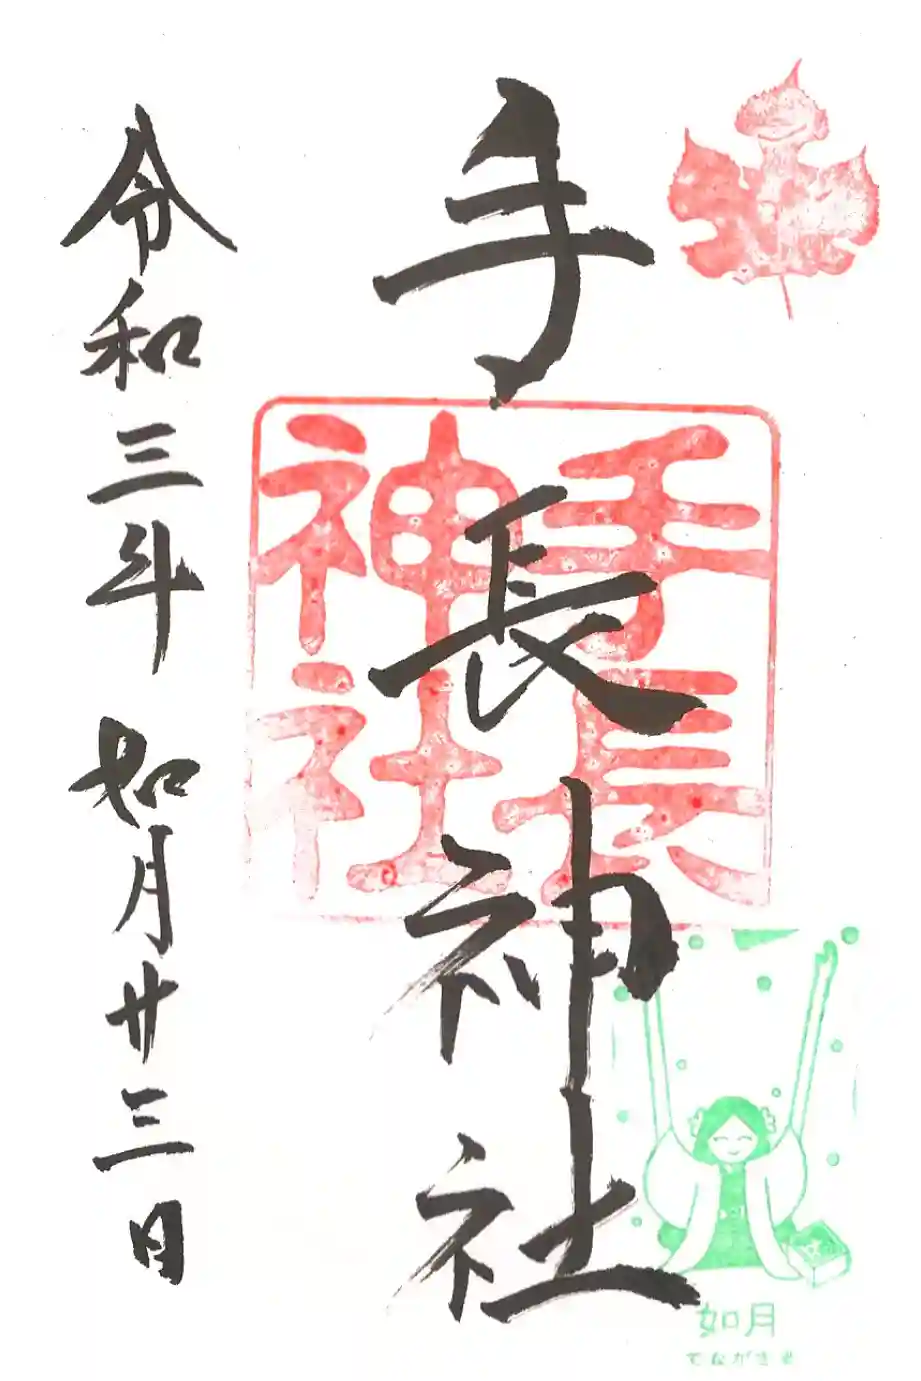 手長神社
手長
神社
令和三年 如月廿三日
如月
てながさま